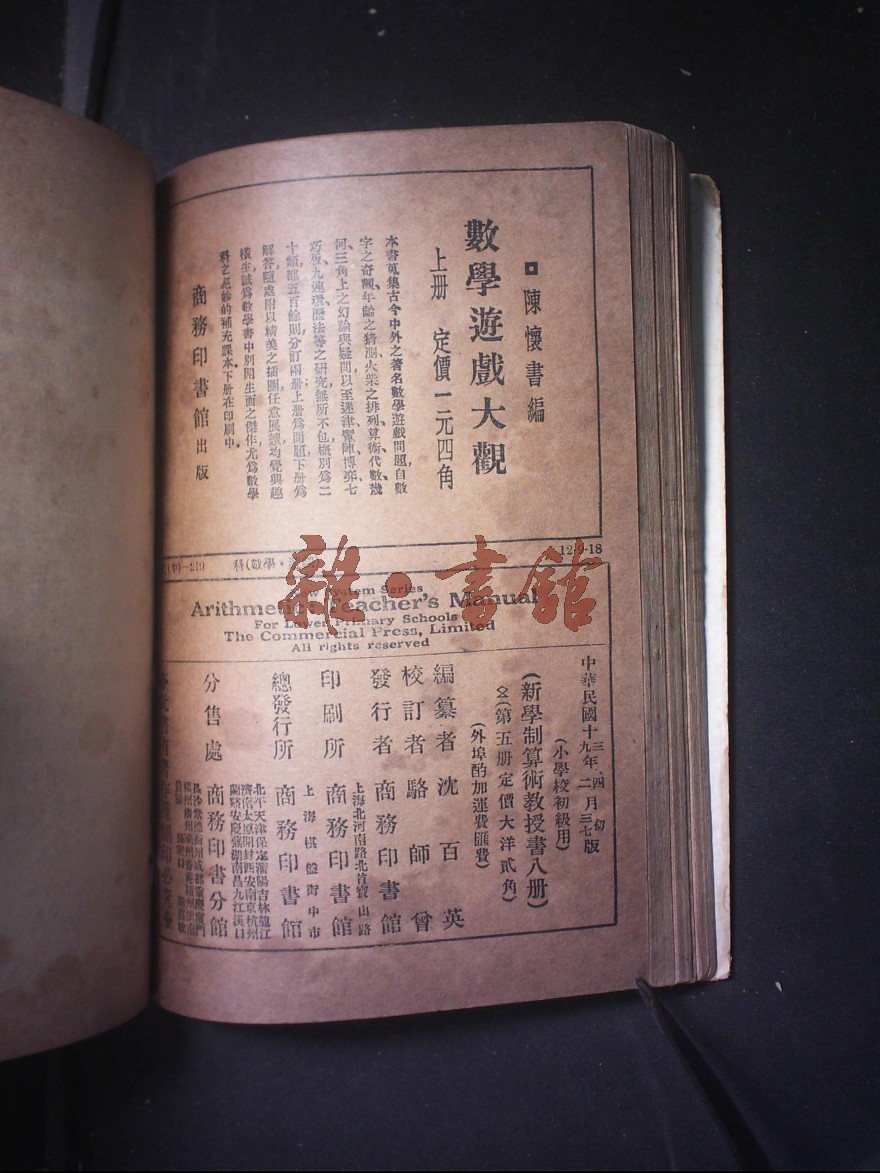 陳懷書編
數學遊戲大觀
上册 定價一元四角
本書蒐集古今中外之著名數學遊戲問題,自數
字之奇觀、年齡之猜測、火柴之排列、算術、代數、幾
何、三角上之幻論與疑問以至迷津、覽陣、博弈、七
巧版、九連環、歷法等之研究無所不包概別爲二
十類都五百餘則分訂兩册上册爲問題下册爲
解答隨處附以精美之插圖任意展讀均覺興趣
橫生誠爲數學書中別開生面之傑作尤爲數學
科之絕妙的補充課本下册在印刷中。
商務印書館出版
科(數學
12-9-18
雜·書館
New System Series
Arithmetic Teacher's Manual
For Lower Primary Schools
The Commercial Press, Limited
All rights reserved
中華民國十三年四月初
十九年二月三七版
(小學校初級用)
(新學制算術教授書八册)
(第五册定價大洋貳角)
(外埠酌加運費匯費)
編纂者 沈百英
校訂者 駱師曾
發行者 商務印書館
上海北河南路北首寶山路
印刷所 商務印書館
上海棋盤街中市
總發行所 商務印書館
北平天津保定瀋陽吉林龍江
濟南太原開封西安南京杭州
蘭谿安慶蕪湖南昌九江漢口
分售處 商務印書分館